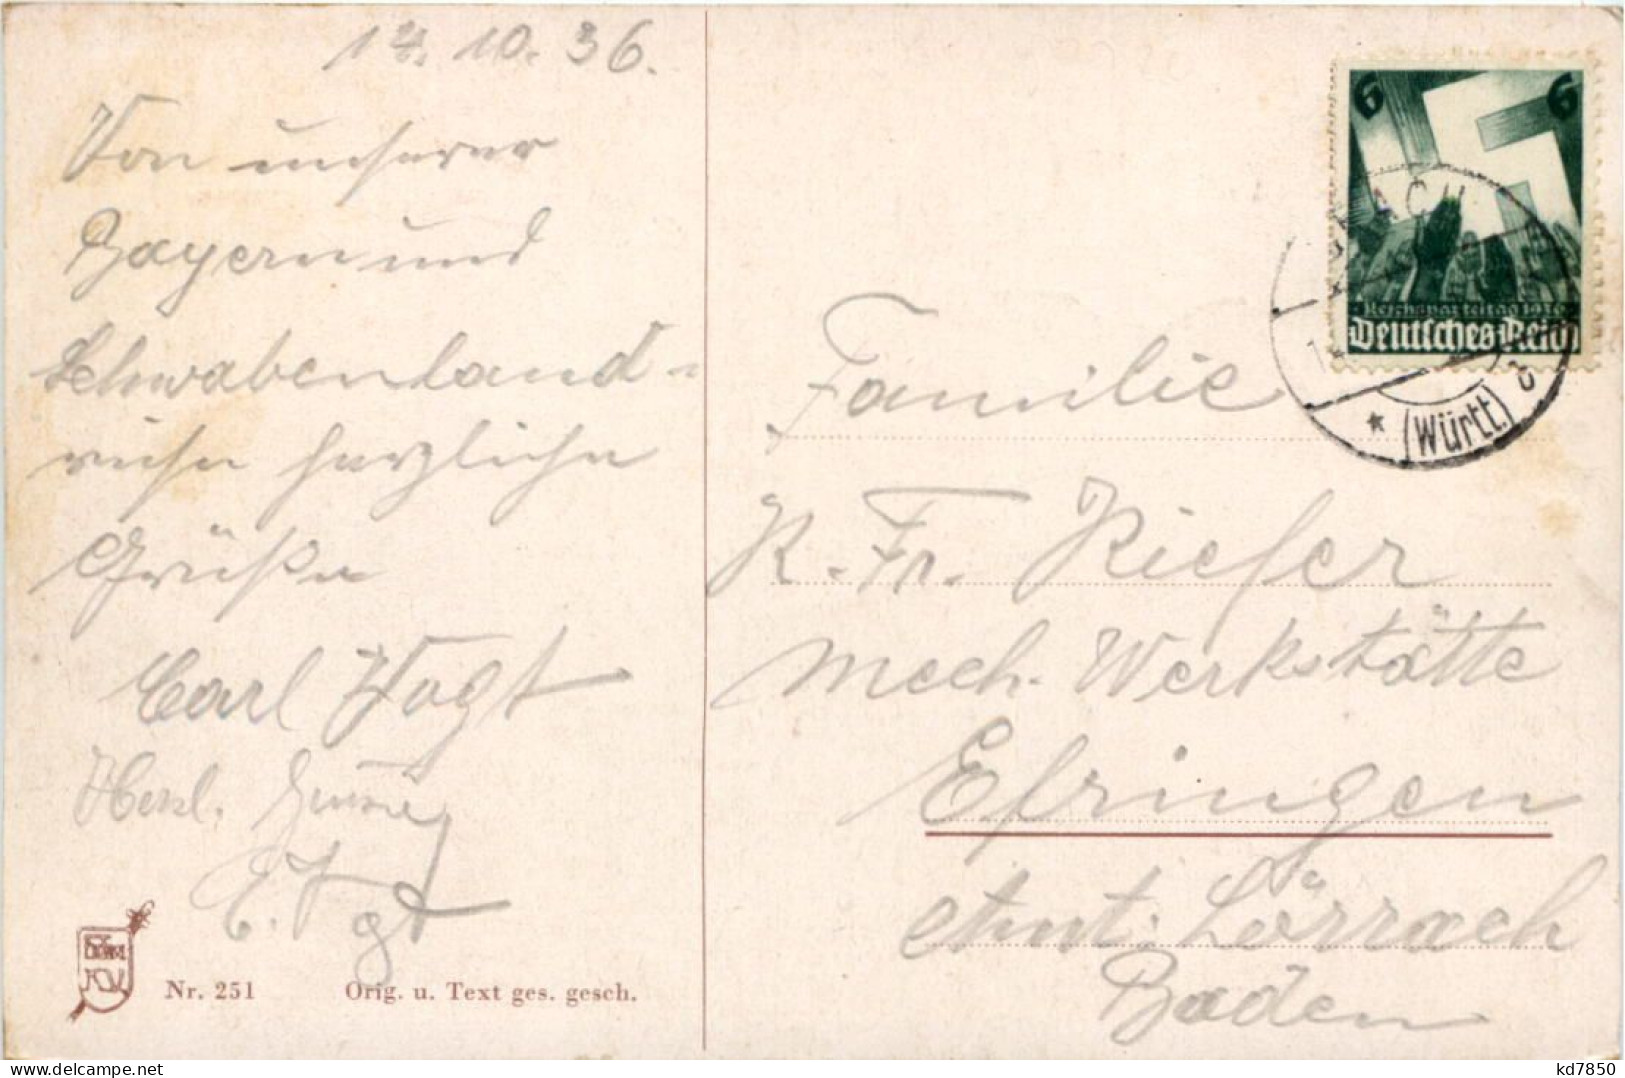 12. 10. 36.
Von unserer
Bayern und
Schwabenland-
reise herzliche
Grüße
Carl Vogt
Herzl. Grüße
E. Vogt
Nr. 251 Orig. u. Text ges. gesch.
6 6
Reichsparteitag 1936
Deutsches Reich
(Württ.)
Familie
K. Fr. Kiefer
mech. Werkstätte
Efringen
Amt: Lörrach
Baden
www.delcampe.net
kd7850